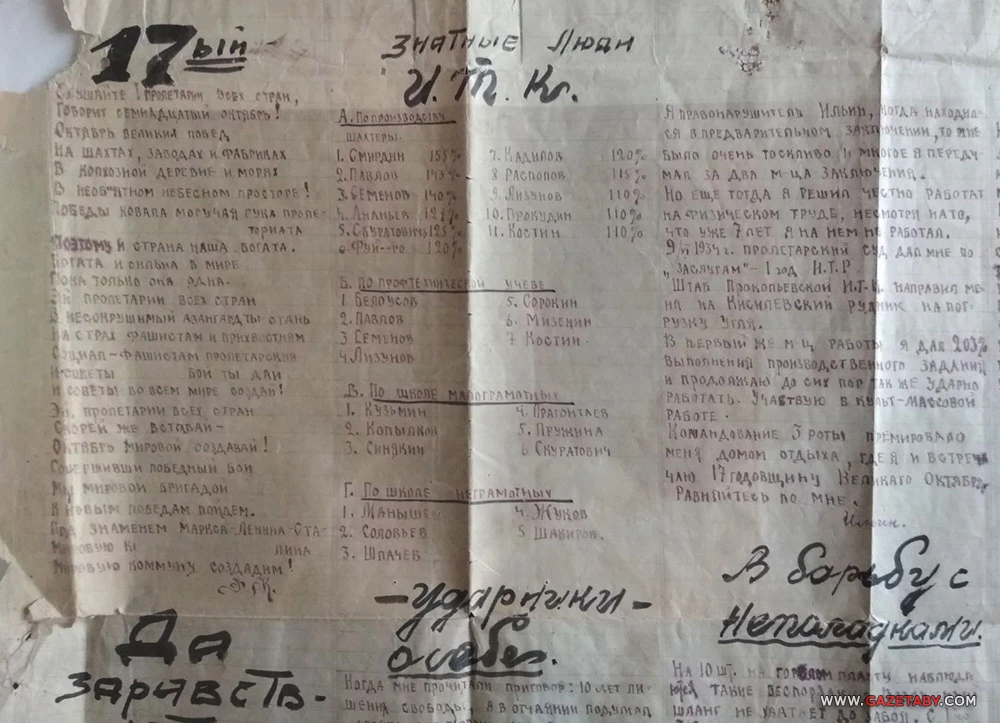 17ый
Слушайте! пролетарии всех стран,
Говорит семнадцатый октябрь!
Октябрь великих побед
На шахтах, заводах и фабриках
В колхозной деревне и морях
В необ'ятном небесном просторе!
Победы ковала могучая рука проле-
ториата
Поэтому и страна наша богата.
Богата и сильна в мире
Пока только она одна.
Эй пролетарии всех стран
В несокрушимый авангард ты стань
На страх фашистам и прихвостням
Социал-фашистам пролетарский
бой ты дай
И советы во всем мире создай!
Эй, пролетарии всех стран
Скорей же вставай-
Октябрь мировой создавай!
Совершивши победный бой
Мы мировой бригадой
К новым победам пойдем.
Под знаменем Маркса-Ленина-Ста-
лина
Мировую коммуну создадим!
Знатные люди
И.Т.К.
А. По производству
шахтеры.
1. Смирдин 155%
2. Павлов 145%
3. Семенов 140%
4. Ананьев
5. Скуратович 125%
6 120%
7. Кадилов 120%
8 Распопов 115%
9. Лизунов 110%
10. Прокудин 110%
11. Костин 110%
Б. По профтехнической учебе
1 Белоусов
2. Павлов
3 Семенов
4. Лизунов
5. Сорокин
6. Мизенин
7 Костин
В. По школе малограмотных
1. Кузьмин
2. Копылков
3. Синякин
4. Прагонтаев
5. Пружина
6 Скуратович
Г. По школе неграмотных
1. Маныше
2. Соловьев
3. Шпачев
4. Жуков
5 Шакиров.
Я правонарушитель Ильин, когда находил-
ся в предварительном заключении, то мне
было очень тоскливо и многое я переду-
мал за два м-ца заключения.
Но еще тогда я решил честно работат
на физическом труде, несмотря на то,
что уже 7 лет я на нем не работал.
1934г. пролетарский суд дал мне по
„заслугам"- 1 год И.Т.Р.
Штаб Прокопьевской И.Т. направил ме
ня на Кисилевский рудник на пог-
рузку угля.
В первый же м-ц работы я дал 203%
выполнения производственного заданий
и продолжаю до сих пор так же ударно
работать. Участвую в культ-массовой
работе.
Командование 3 роты премировало
меня домом отдыха, где я и встреч
чаю 17 годовщину Великаго Октября
Равняйтесь по мне.
Ильин.
Да
здравств-
-ударники-
о себе.
Когда мне прочитали приговор: 10 лет ли-
шения свободы, я в отчаянии подумал
В борьбу с
неполадками.
На 10 шт. на пласту наблюда
ются такие
шланг не хватает до забоя
WWW.GAZETABY.COM